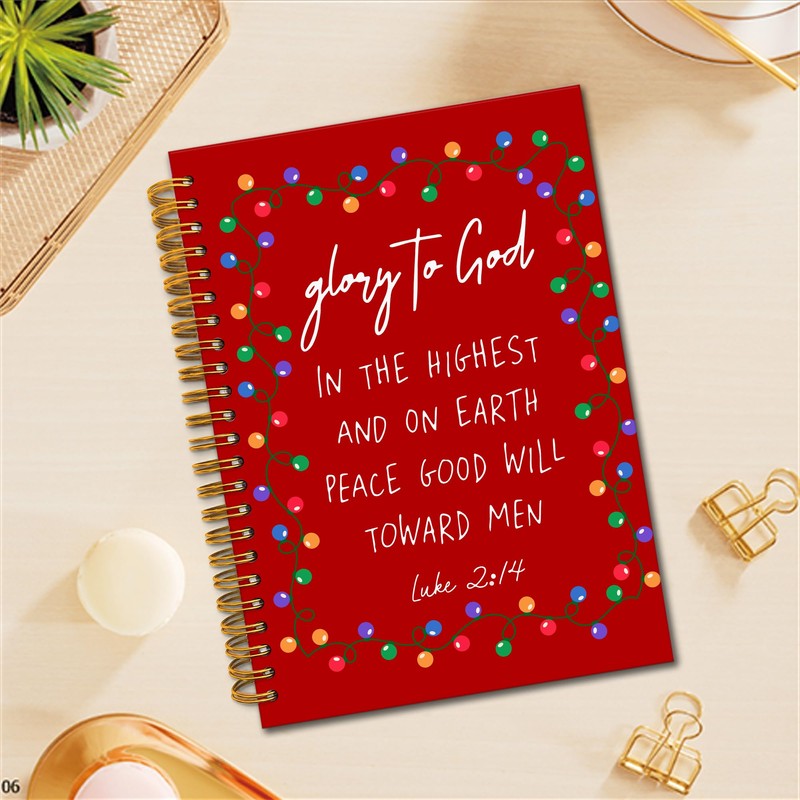 glory to God
IN THE HIGHEST
AND ON EARTH
PEACE GOOD WILL
TOWARD MEN
Luke 2:14
06